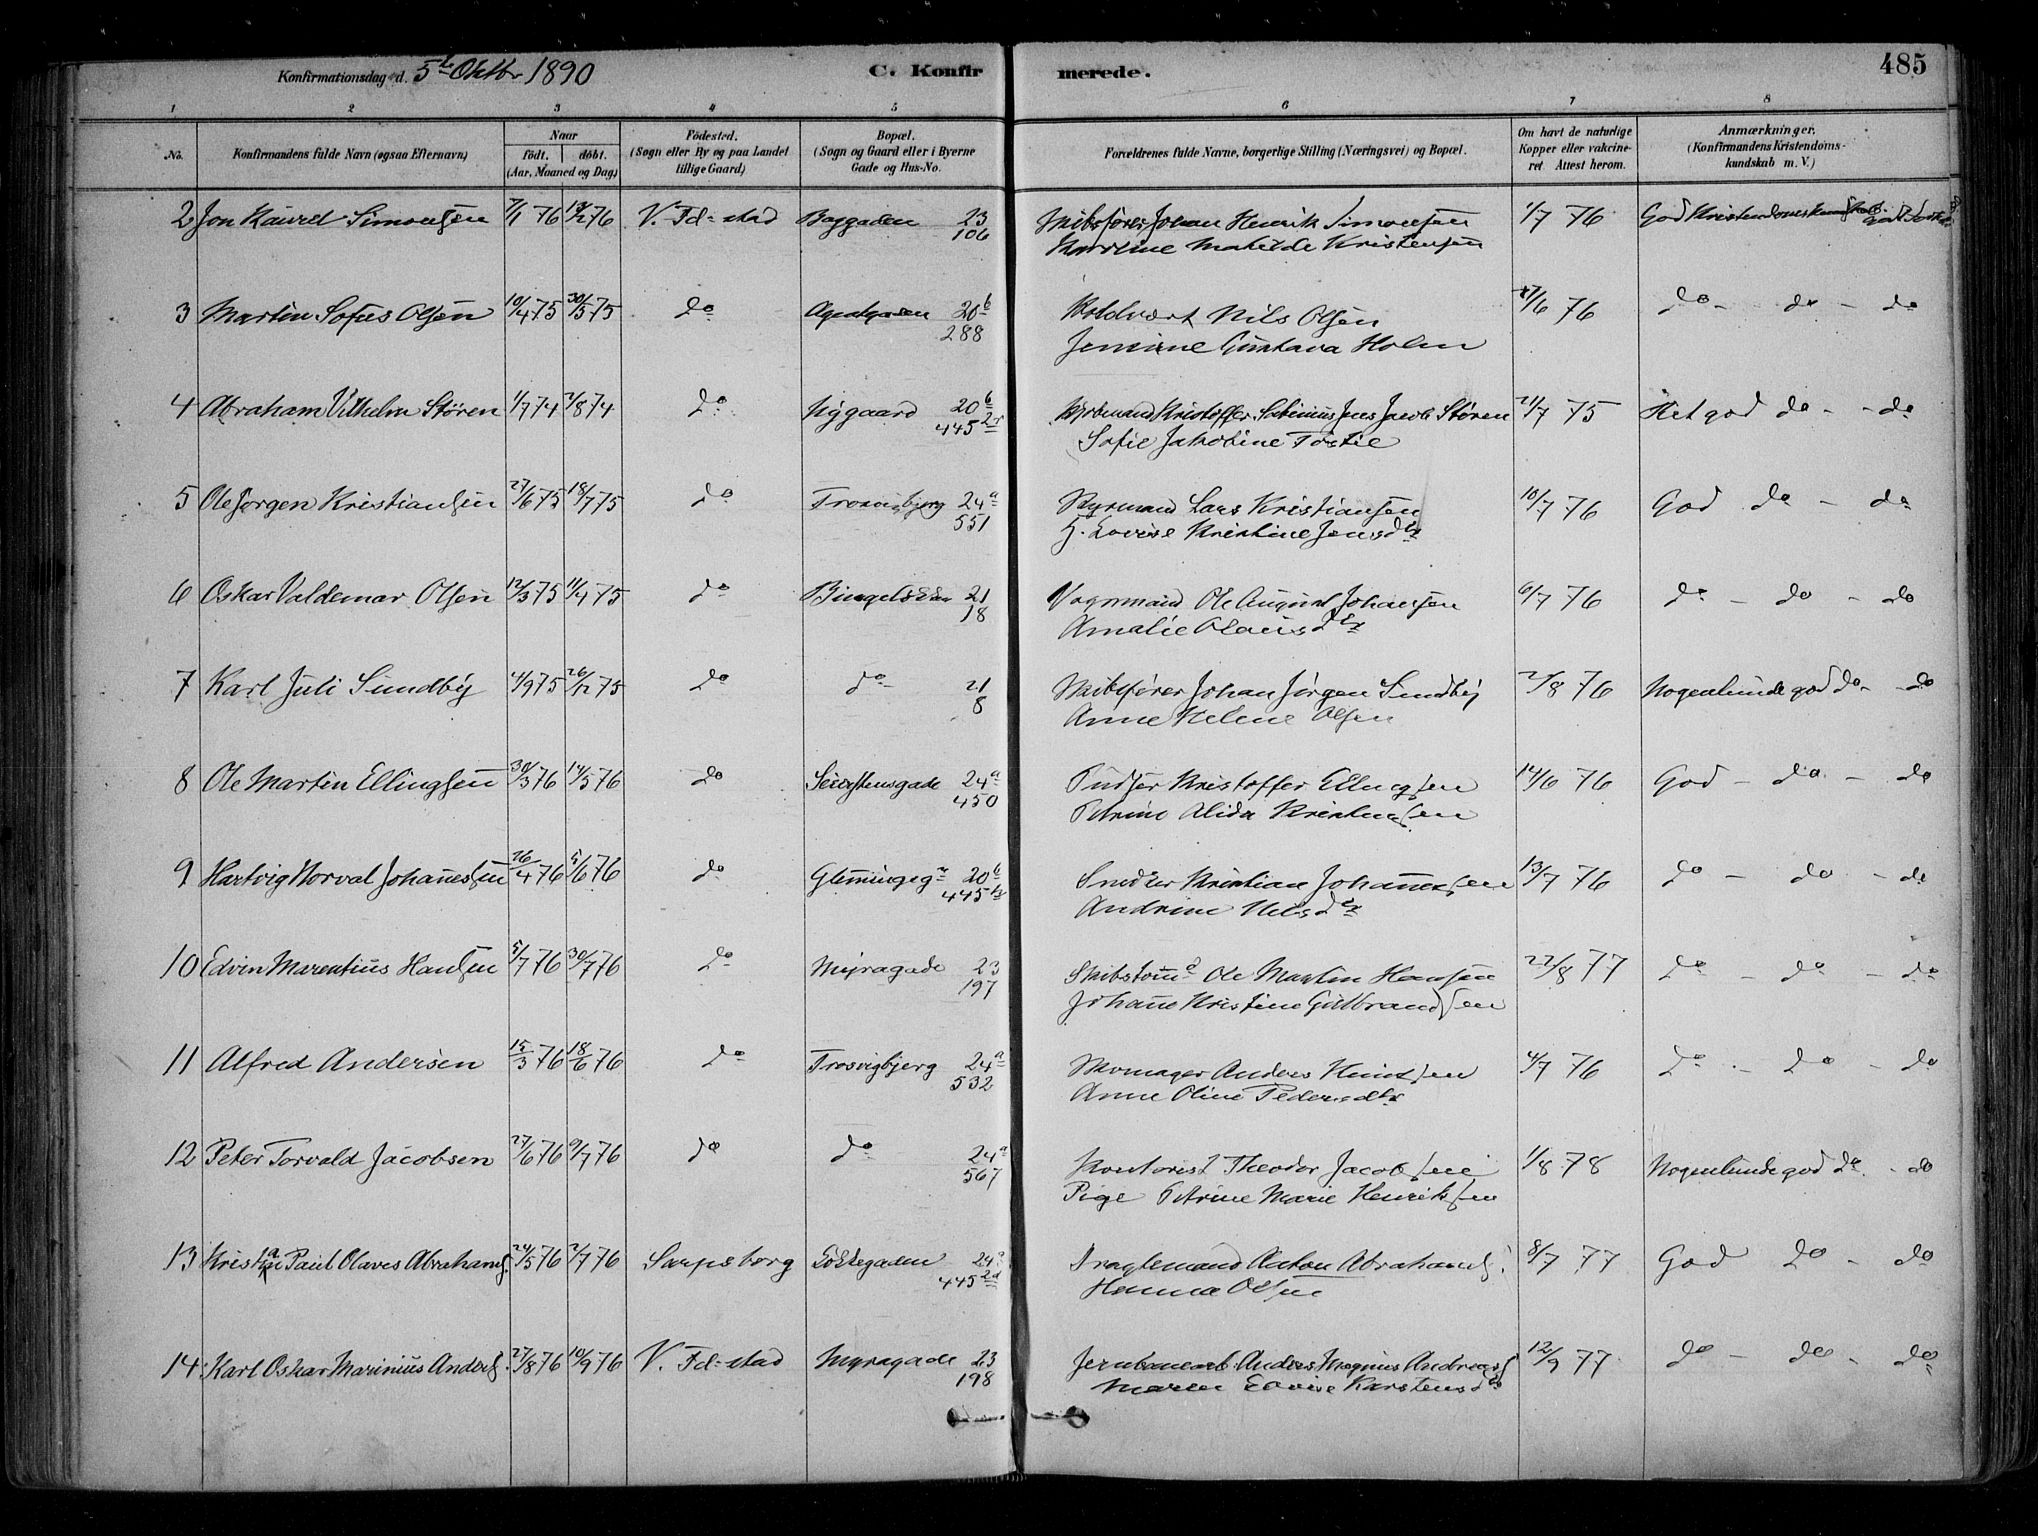 Konfirmationsdag d. 5te Oktbr 1890 C. Konfirmerede. 485
1 2 3 4 5 6 7 8
No. Konfirmandens fulde Navn (ogsaa Efternavn) Naar født. døbt. (Aar, Maaned og Dag) Fødested. (Sogn eller By og paa Landet tillige Gaard) Bopæl. (Sogn og Gaard eller i Byerne Gade og Hus-No. Forældrenes fulde Navne, borgerlige Stilling (Næringsvei) og Bopæl. Om havt de naturlige Kopper eller vakcineret Attest herom. Anmærkninger. (Konfirmandens Kristendomskundskab m. V.)
2 Jon Laurel Simonsen 7/1 76 76 V. Fd-stad Baggaden 23 Skibsfører Johan Henrik Simonsen 1/7 76 God Kristendomskundskab
106 Karoline Matilde Kristensen
3 Martin Sofus Olsen 10/4 75 30/5 75 do 20 b Nils Olsen 17/6 76 do - do - do
288 Jensine Gustava Holm
4 Abraham Vilhelm Støren 1/7 74 2/8 74 do Nygaard 20 b Kristoffer Sabinius Jens Jacob Støren 21/7 75 Het god do - - do
445 Sofie Jakobine Tostie
5 Ole Jørgen Kristiansen 27/6 75 18/7 75 do Trosvigbjerg 24 a Styrmand Lars Kristiansen 10/7 76 God do - do
551 H. Lovise Kristine Jensdtr
6 Oskar Valdemar Olsen 12/3 75 11/4 75 do 21 Vognmand Ole August Johansen 6/7 76 do - do - do
18 Amalie Olausdtr
7 Karl Juli Sundby 4/9 75 26/12 75 do do 21 Skibsfører Johan Jørgen Sundby 2/8 76 Nogenlunde god do - do
8 Anne Helene Olsen
8 Ole Martin Ellingsen 30/3 76 14/5 76 do Seierstensgade 24 a Kristoffer Ellingsen 14/6 76 God - do - do
450 Petrine Alida Kristensen
9 Hartvig Norval Johannesen 16/4 76 5/6 76 do Glemmingeg. 20 b Snedker Kristian Johannesen 13/7 76 do - do - do
445 Andrine Nilsdtr
10 Edvin Marentius Hansen 5/7 76 30/7 76 do Myragade 23 Skibstømd Ole Martin Hansen 22/8 77 do - do - do
197 Johanne Kristine Gulbrandsen
11 Alfred Andersen 15/3 76 18/6 76 do Trosvigbjerg 24 a Skomager Anders Knudsen 4/7 76 do - do - do
532 Anne Oline Pedersdtr
12 Peter Torvald Jacobsen 27/6 76 9/7 76 do do 24 a Kontorist Theodor Jacobsen 1/8 78 Nogenlunde god do - do
567 Pige Petrine Marie Henriksen
13 Kristian Paul Olaves Abrahams. 24/5 76 2/7 76 Sarpsborg 24 a Anton Abrahams. 8/7 77 God do - do
445 2d Hanna Olsen
14 Karl Oskar Marinius Anders. 27/8 76 10/9 76 V. Fd-stad Myragade 23 Jernbanearb. Anders Magnus Andreass. 12/9 77 do - do - do
198 Maren Lovise Karstensdtr